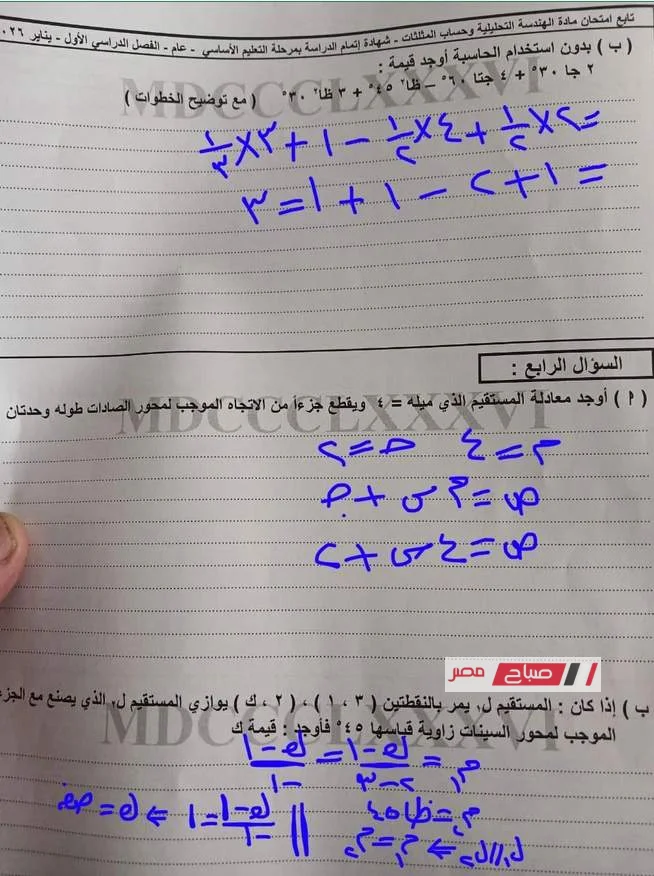 تابع امتحان مادة الهندسة التحليلية وحساب المثلثات - شهادة إتمام الدراسة بمرحلة التعليم الأساسي - عام - الفصل الدراسي الأول - يناير ٠٢٦
( ب ) بدون استخدام الحاسبة أوجد قيمة :
٢ جا ٣٠° + ٤ جتا ٦٠° – ظا٢ ٤٥° + ٣ ظا٢ ٣٠° ( مع توضيح الخطوات )
MDCCCLXXXVI
= ٢ × ١/٢ + ٤ × ١/٢ – ١ + ٣ × ١/٣
= ١ + ٢ – ١ + ١ = ٣
السؤال الرابع :
( أ ) أوجد معادلة المستقيم الذي ميله = ٤ ويقطع جزءاً من الاتجاه الموجب لمحور الصادات طوله وحدتان
MDCCCLXXXVI
م = ٤ حـ = ٢
ص = م س + جـ
ص = ٤ س + ٢
صباح مصر
ب ) إذا كان : المستقيم ل١ يمر بالنقطتين ( ٣ ، ١ ) ، ( ٢ ، ك ) يوازي المستقيم ل٢ الذي يصنع مع الجزء
الموجب لمحور السينات زاوية قياسها ٤٥° فأوجد : قيمة ك
MDCCCLXXXVI
م١ = ك – ١ / ٢ – ٣ = ك – ١ / –١
م٢ = ظا ٤٥
ل١ // ل٢ ⇐ م١ = م٢
ك – ١ / –١ = ١ ⇐ ك = صفر